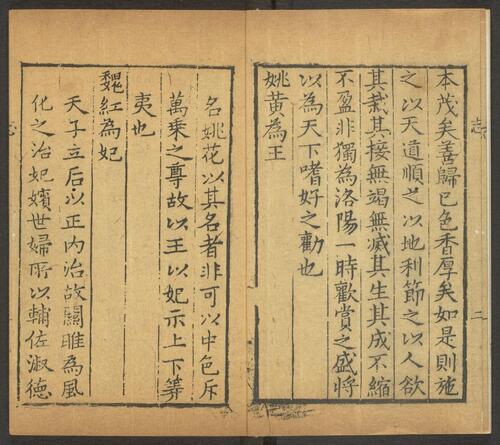 本茂矣善歸已色香厚矣如是則施
之以天道順之以地利節之以人欲
其栽其接無竭無滅其生其成不縮
不盈非獨為洛陽一時歡賞之盛將
以為天下嗜好之勸也
姚黃為王
名姚花以其名者非可以中色斥
萬乘之尊故以王以妃示上下等
夷也
魏紅為妃
天子立后以正內治故關雎為風
化之治妃嬪世婦所以輔佐淑德
志
二